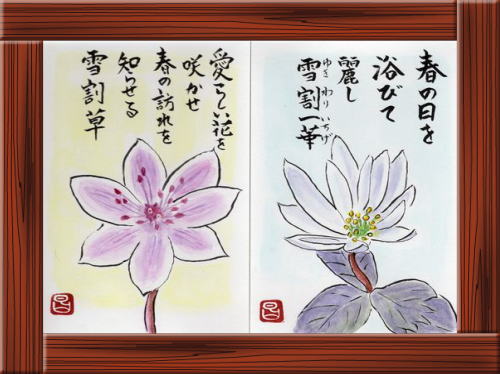 春の日を
浴びて
麗し
雪割一華
ゆきわりいちげ
愛らしい花を
咲かせ
春の訪れを
知らせる
雪割草